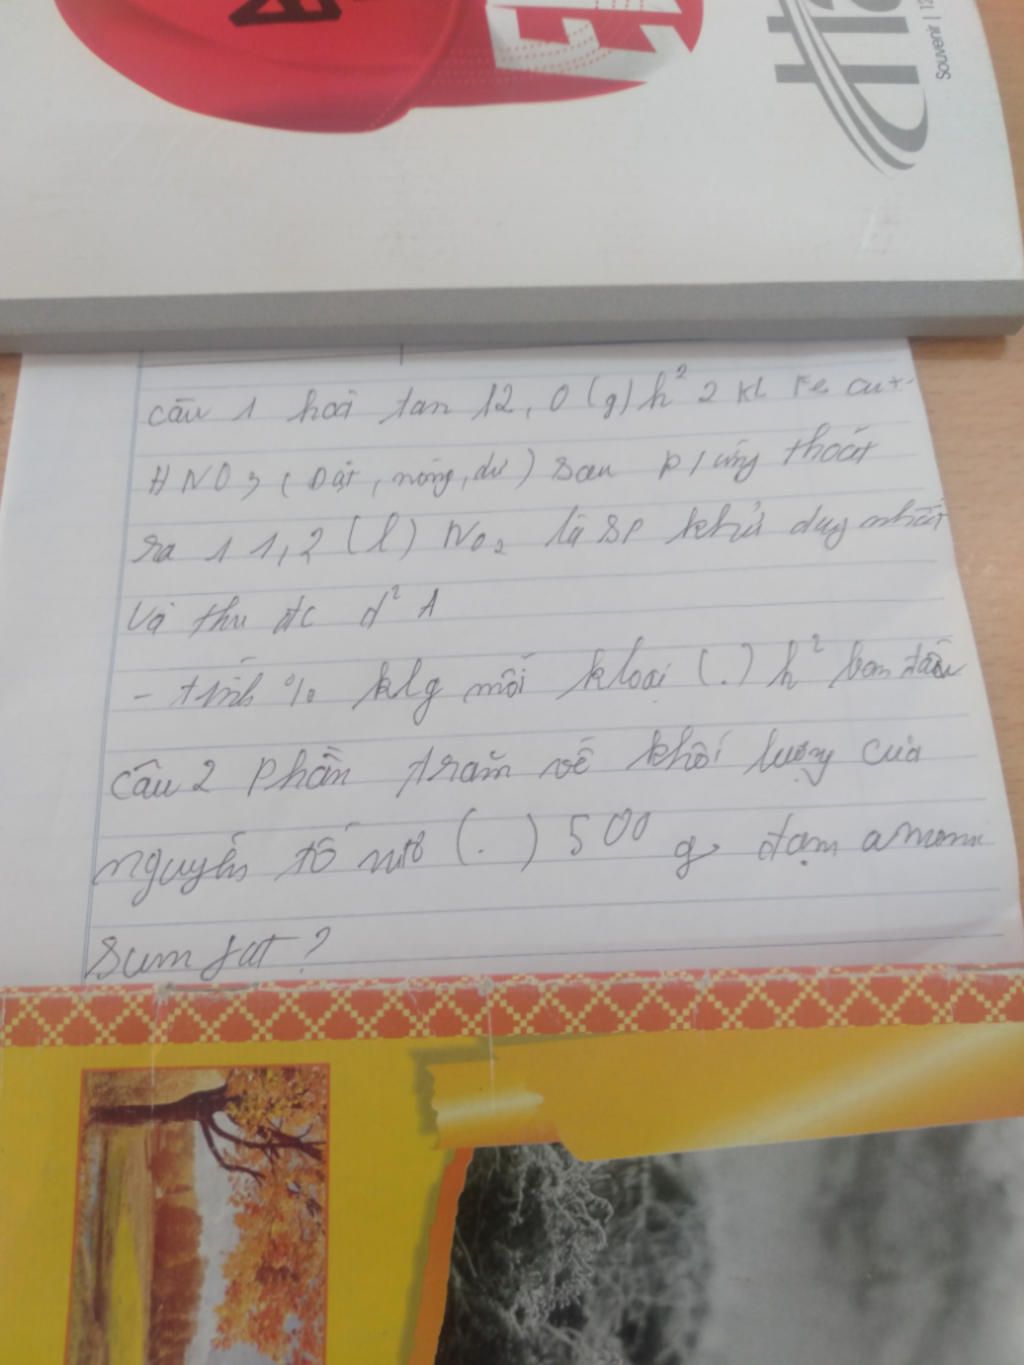 Souvenir | 13
câu 1 hoà tan 12,0 (g) h² 2 kl Fe cu +
HNO3 (Đặt, nóng, dư) sau p/ứng thoát
ra 11,2 (l) NO2 là SP khử duy nhất
Và thu đc d² A
- tính % klg mỗi kloại (.) h² ban đầu
câu 2 Phần trăm về khối lượng của
nguyên tố nitơ (.) 500 g đạm amoni
sumfat ?